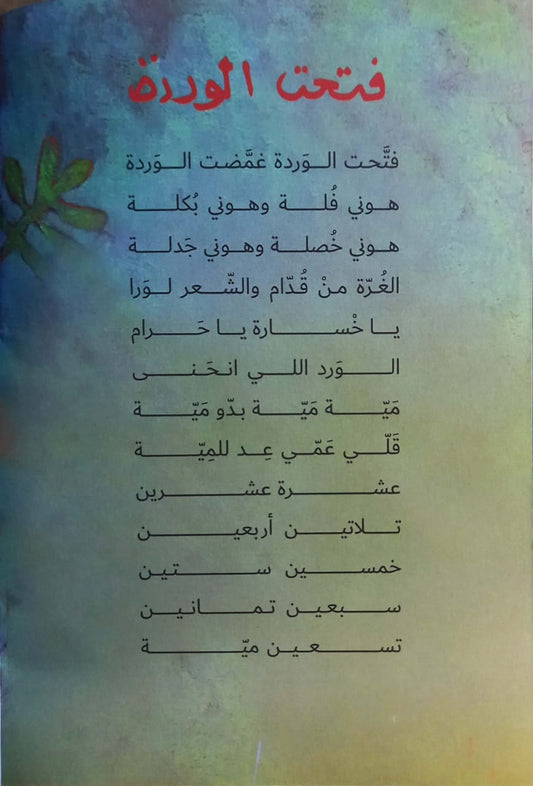 فتحت الوردة
فتَّحت الوَردة غمَّضت الوَردة
هوني فُلة وهوني بُكلة
هوني خُصلة وهوني جَدلة
الغُرّة منْ قُدّام والشّعر لوَرا
يا خْسارة يا حَرام
الوَرد اللي انحَنى
مَيّة مَيّة بدّو مَيّة
قَلّي عَمّي عِد للمِيّة
عشرة عشرين
تلاتين أربعين
خمسين ستين
سبعين تمانين
تسعين ميّة